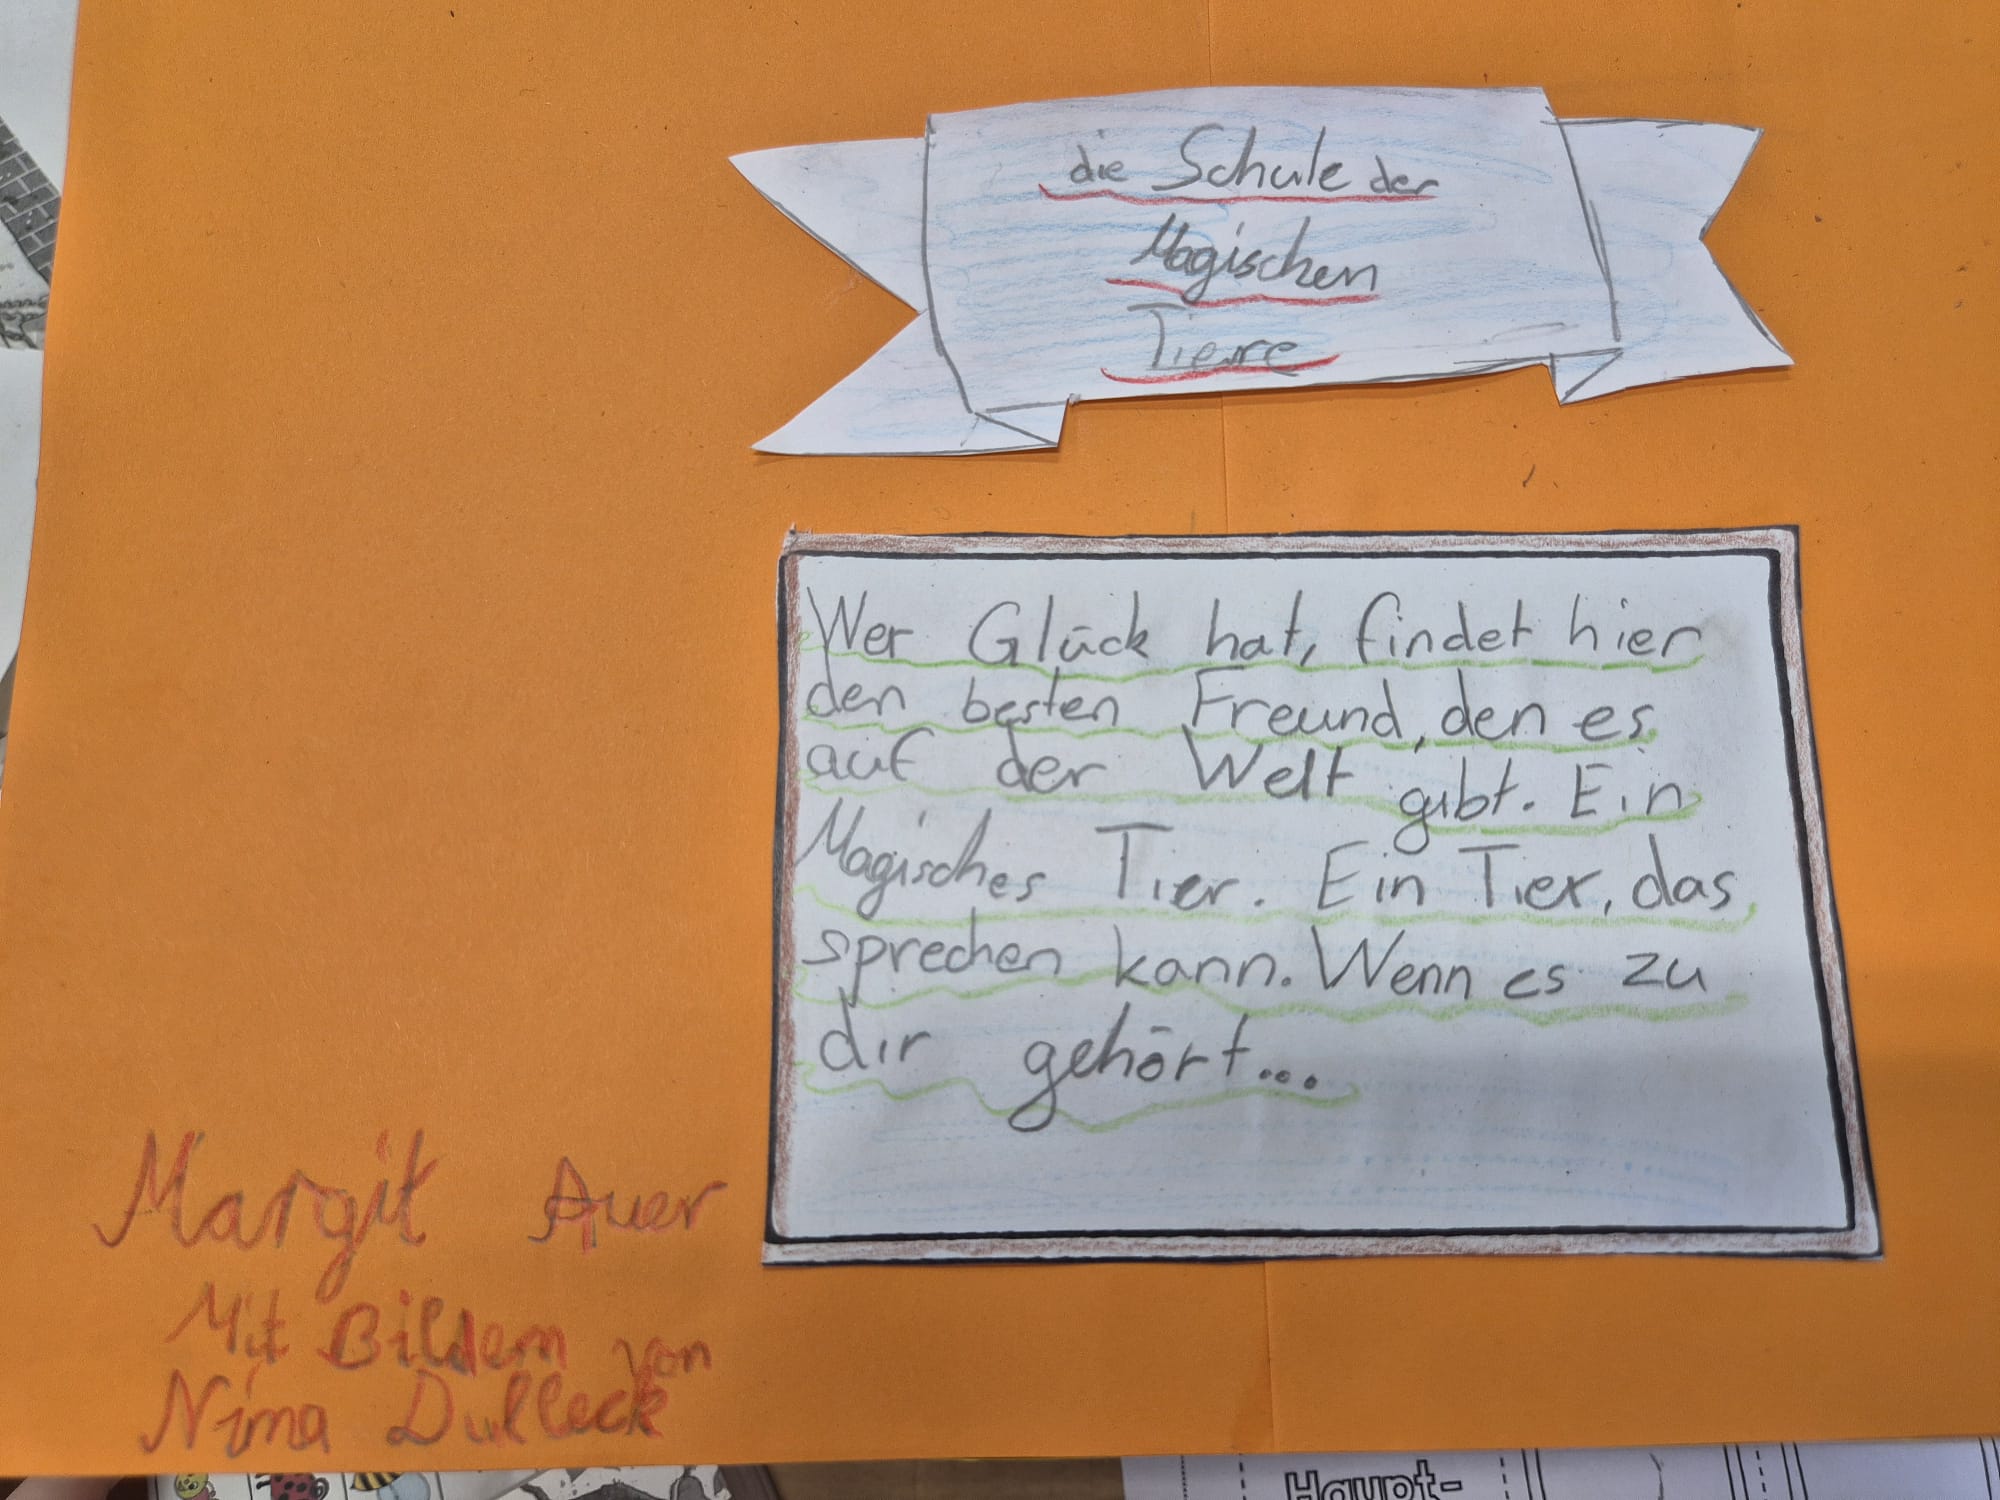 die Schule der
Magischen
Tiere
Wer Glück hat, findet hier
den besten Freund, den es
auf der Welt gibt. Ein
Magisches Tier. Ein Tier, das
sprechen kann. Wenn es zu
dir gehört...
Margit Auer
Mit Bildern von
Nina Dulleck
Haupt-